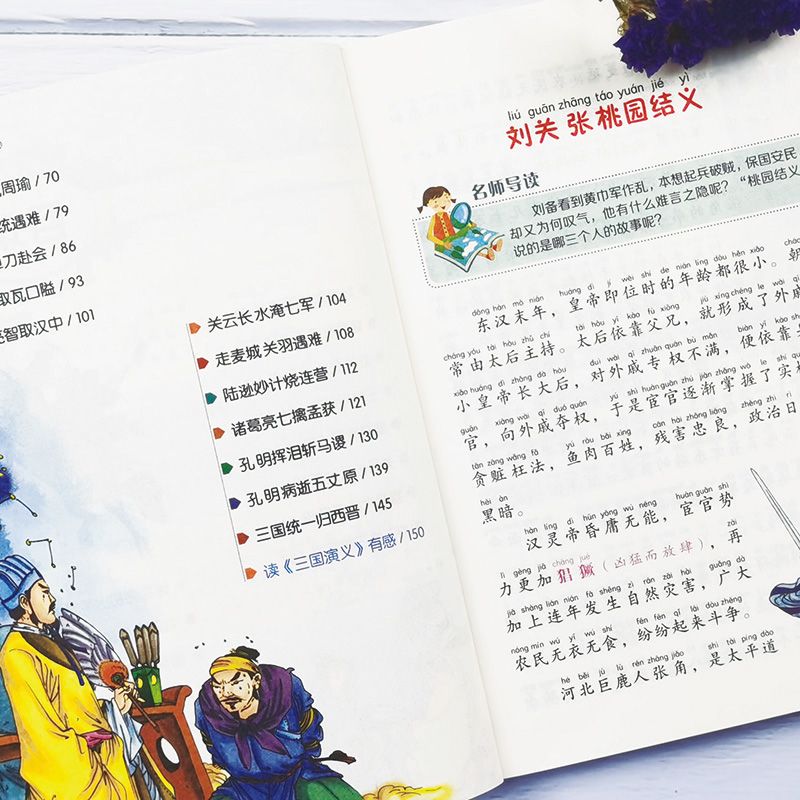 周瑜 / 70
统遇难 / 79
刀赴会 / 86
取瓦口隘 / 93
智取汉中 / 101
关云长水淹七军 / 104
走麦城关羽遇难 / 108
陆逊妙计烧连营 / 112
诸葛亮七擒孟获 / 121
孔明挥泪斩马谡 / 130
孔明病逝五丈原 / 139
三国统一归西晋 / 145
读《三国演义》有感 / 150
liú guān zhāng táo yuán jié yì
刘关张桃园结义
名师导读
刘备看到黄巾军作乱，本想起兵破贼，保国安民
却又为何叹气，他有什么难言之隐呢？“桃园结义
说的是哪三个人的故事呢？
dōng hàn mò nián huáng dì jí wèi shí de nián líng dōu hěn xiǎo
东汉末年，皇帝即位时的年龄都很小。朝
cháng yóu tài hòu zhǔ chí tài hòu yī kào fù xiōng jiù xíng chéng le wài qī
常由太后主持。太后依靠父兄，就形成了外戚
xiǎo huáng dì zhǎng dà hòu duì wài qī zhuān quán bù mǎn biàn yī kào
小皇帝长大后，对外戚专权不满，便依靠
guān xiàng wài qī duó quán yú shì huàn guān zhú jiàn zhǎng wò le shí
官，向外戚夺权，于是宦官逐渐掌握了实权
tān zāng wǎng fǎ yú ròu bǎi xìng cán hài zhōng liáng zhèng zhì rì
贪赃枉法，鱼肉百姓，残害忠良，政治日
hēi àn
黑暗。
hàn líng dì hūn yōng wú néng huàn guān shì
汉灵帝昏庸无能，宦官势
lì gèng jiā chāng jué zài
力更加猖獗（凶猛而放肆），再
jiā shàng lián nián fā shēng zì rán zāi hài guǎng dà
加上连年发生自然灾害，广大
nóng mín wú yī wú shí fēn fēn qǐ lái dòu zhēng
农民无衣无食，纷纷起来斗争。
hé běi jù lù rén zhāng jiǎo shì tài píng dào
河北巨鹿人张角，是太平道